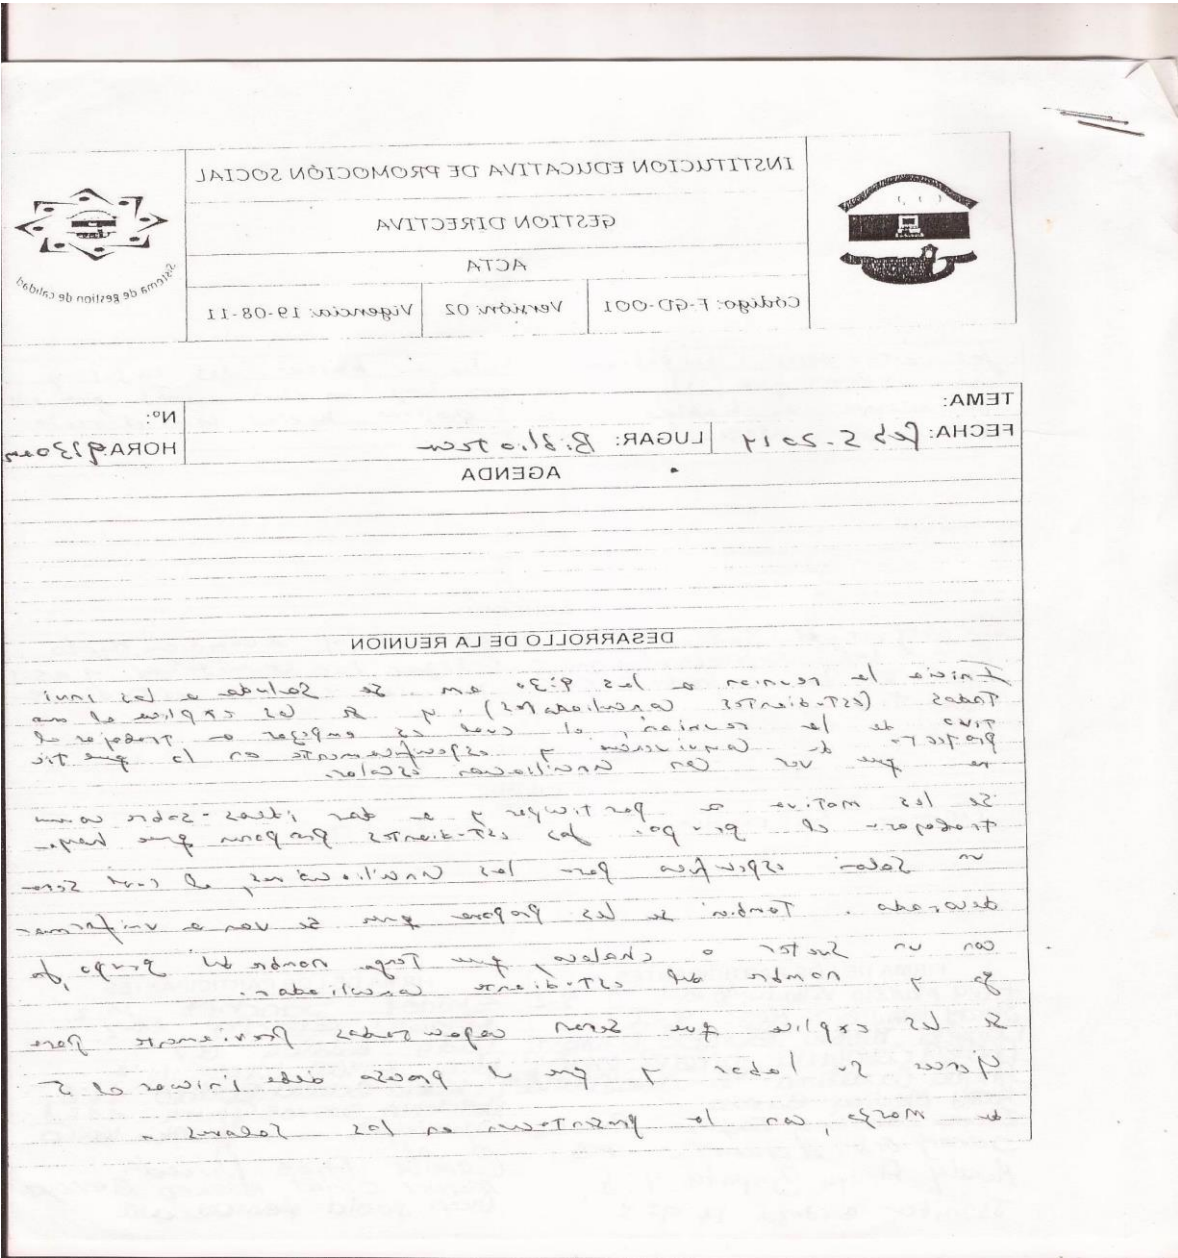 INSTITUCION EDUCATIVA DE PROMOCIÓN SOCIAL
GESTION DIRECTIVA
ACTA
Código: F-GD-001 Versión: 02 Vigencia: 19-08-11
Sistema de gestion de calidad
TEMA: Nº:
FECHA: feb 5-2014 LUGAR: Biblioteca HORA 9:30am
AGENDA
DESARROLLO DE LA REUNION
Inicia la reunion a las 9:30 am se saluda a los invi
tados (estudiantes conciliadores); y se les explica el mo
tivo de la reunion, el cual es empezar a trabajar el
proyecto de convivencia y especificamente en lo que tie
ne que ver con conciliacion escolar.
Se les motiva a participar y a dar ideas sobre como
trabajar el grupo. Los estudiantes proponen que haya
un salon especifico para los conciliadores, el cual sera
decorado. Tambien se les propone que se van a uniformar
con un sueter o chaleco, que tenga nombre del grupo, lo
go y nombre del estudiante conciliador.
Se les explica que seran capacitados previamente para
ejercer su labor y que el proceso debe iniciar el 5
de marzo, con la presentacion en los salones.